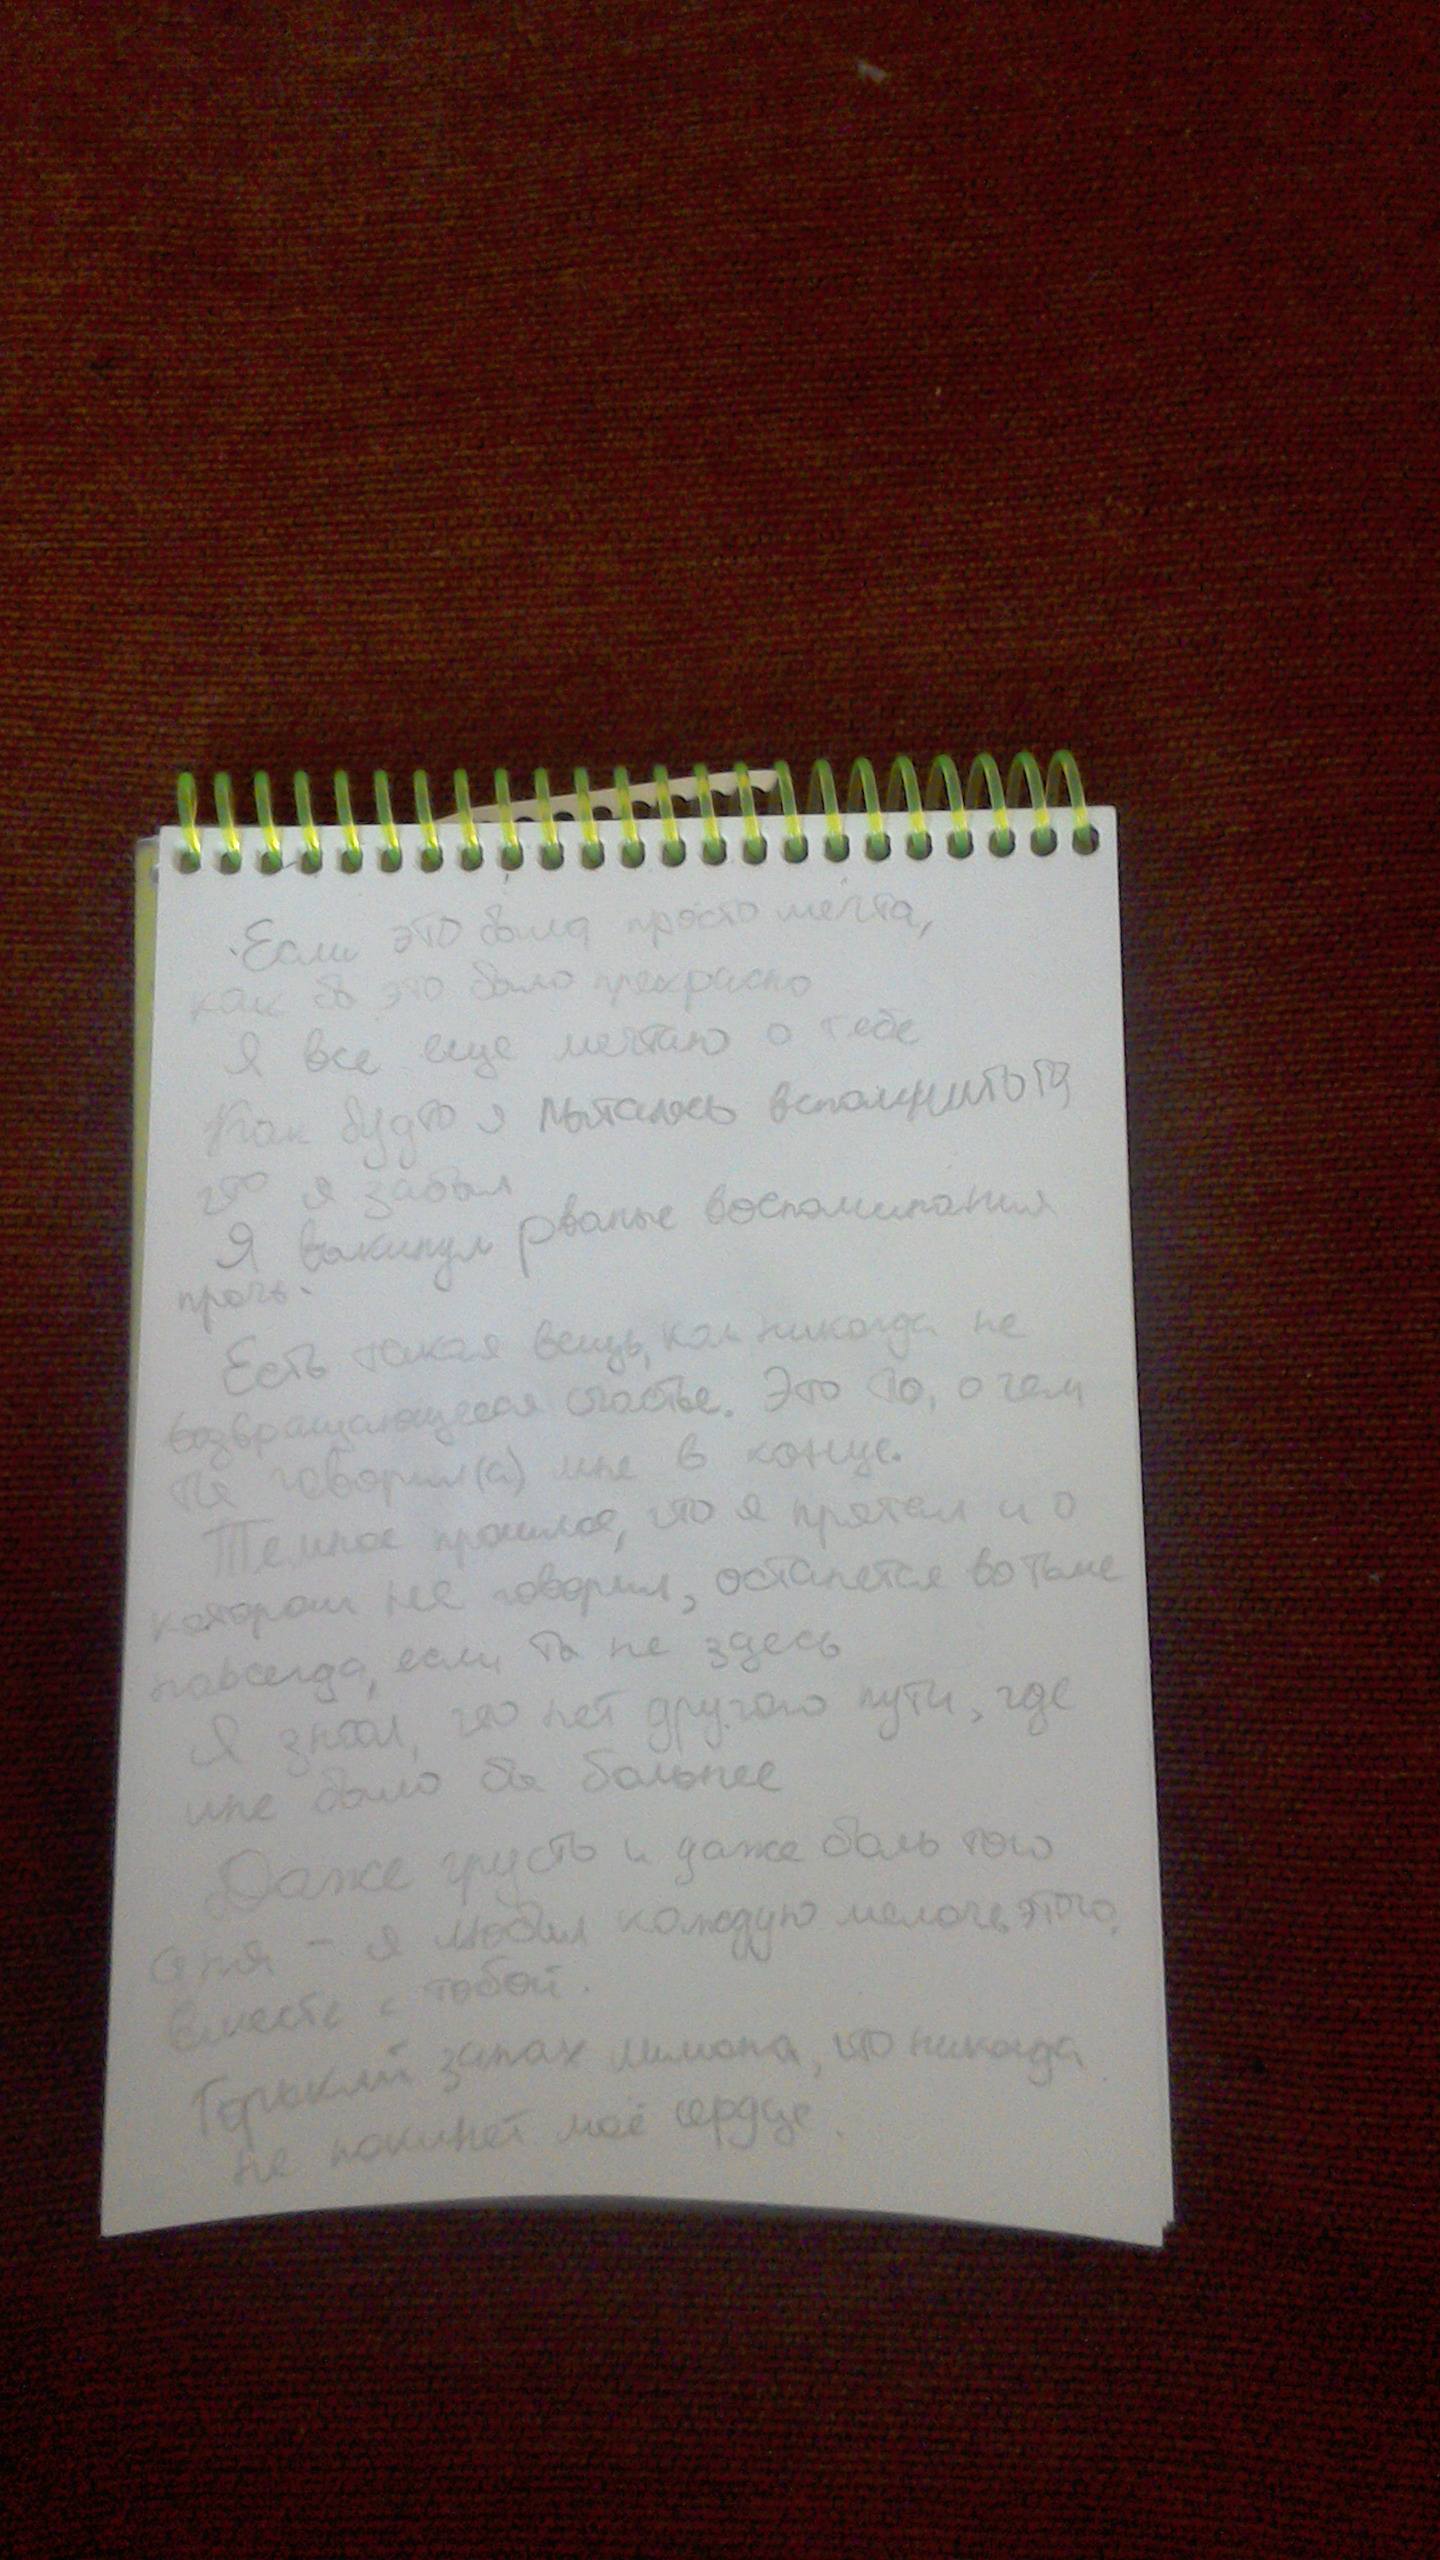 Если это была просто мечта,
как бы это было прекрасно
Я все еще мечтаю о тебе
Как будто я пытаюсь вспомнить то
что я забыл
Я выкинул рваные воспоминания
прочь.
Есть такая вещь, как никогда не
возвращающееся счастье. Это то, о чем
ты говорил(а) мне в конце.
Темное прошлое, что я прятал и о
котором не говорил, останется во тьме
навсегда, если ты не здесь
Я знал, что нет другого пути, где
мне было бы больнее
Даже грусть и даже боль того
дня - я любил каждую мелочь этого,
вместе с тобой.
Горький запах лимона, что никогда
не покинет моё сердце.